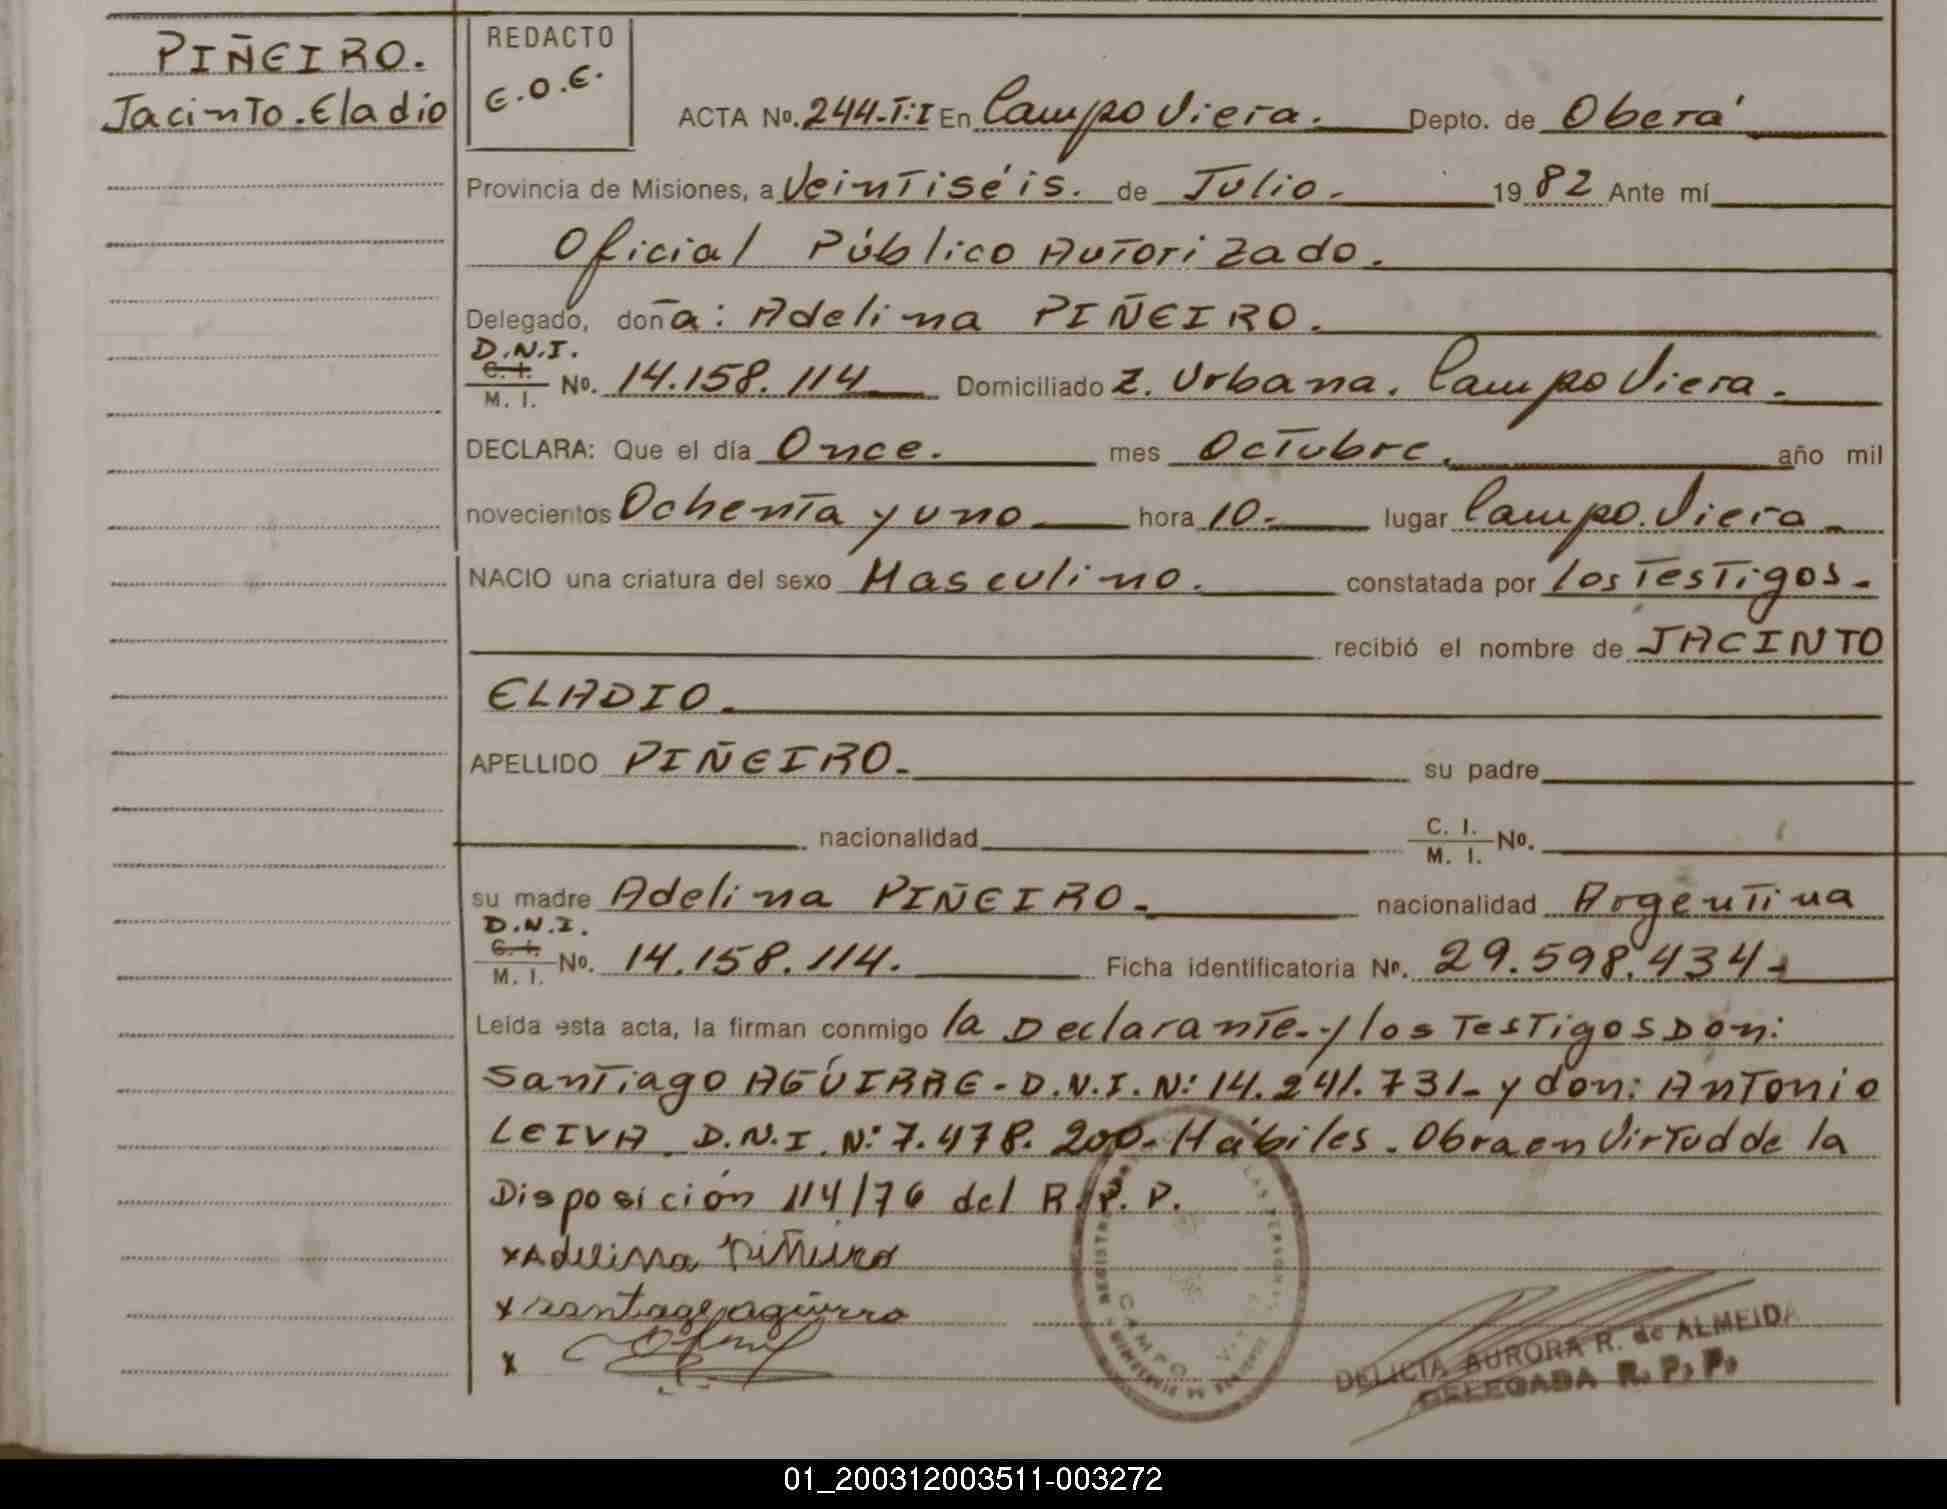 PIÑEIRO.
Jacinto.Eladio
REDACTO
E.O.E.
ACTA No. 244-T:I En Campo Viera. Depto. de Oberá
Provincia de Misiones, a Veintiséis. de Julio. 1982 Ante mí
Oficial Público Autorizado.
Delegado, doña: Adelina PIÑEIRO.
D.N.I.
C. I.
M. I. No. 14.158.114 Domiciliado Z. Urbana. Campo Viera.
DECLARA: Que el día Once. mes Octubre. año mil
novecientos Ochenta y uno hora 10- lugar Campo.Viera-
NACIO una criatura del sexo Masculino. constatada por los Testigos-
recibió el nombre de JACINTO
ELADIO.
APELLIDO PIÑEIRO- su padre
nacionalidad C. I. M. I. No.
su madre Adelina PIÑEIRO- nacionalidad Argentina
D.N.I.
C. I.
M. I. No. 14.158.114. Ficha identificatoria No. 29.598.434-
Leída esta acta, la firman conmigo la Declarante-y los Testigos Don:
Santiago AGÚIRRE- D.N.I. N: 14.241.731- y don: Antonio
LEIVA D.N.I. N: 7.478.200- Hábiles. Obra en Virtud de la
Disposición 114/76 del R.P.P.
x Adelina Piñeiro
x santiago agüirro
x
REGISTR LAS PERSONAS
CAMPO V
DELICIA AURORA R. de ALMEIDA
DELEGADA R. P. P.
01_200312003511-003272